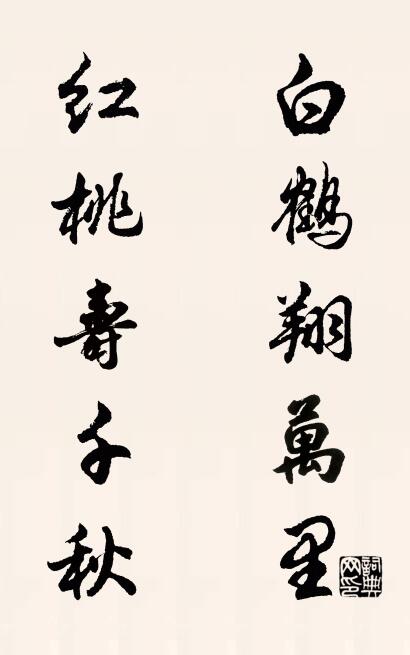 白鶴翔萬里
紅桃壽千秋
詞典網印